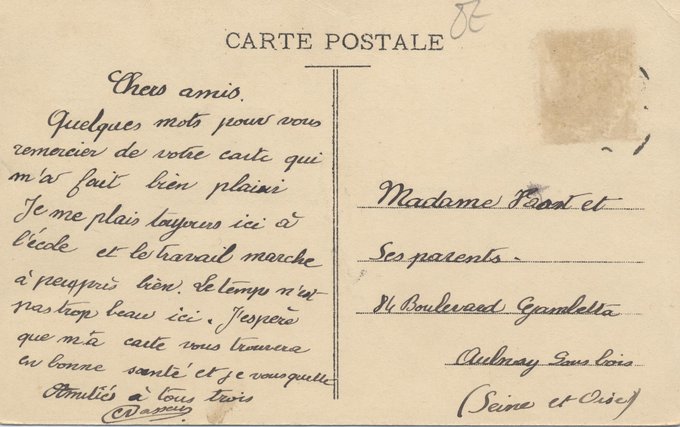 CARTE POSTALE
Chers amis.
Quelques mots pour vous
remercier de votre carte qui
m'a fait bien plaisir
Je me plais toujours ici à
l'école et le travail marche
à peu près bien. Le temps n'est
pas trop beau ici. J'espère
que m'a carte vous trouvera
en bonne santé et je vous quitte
Amitiés à tous trois
Madame et
Ses parents -
84 Boulevard Gambetta
Aulnay sous bois
(Seine et Oise)